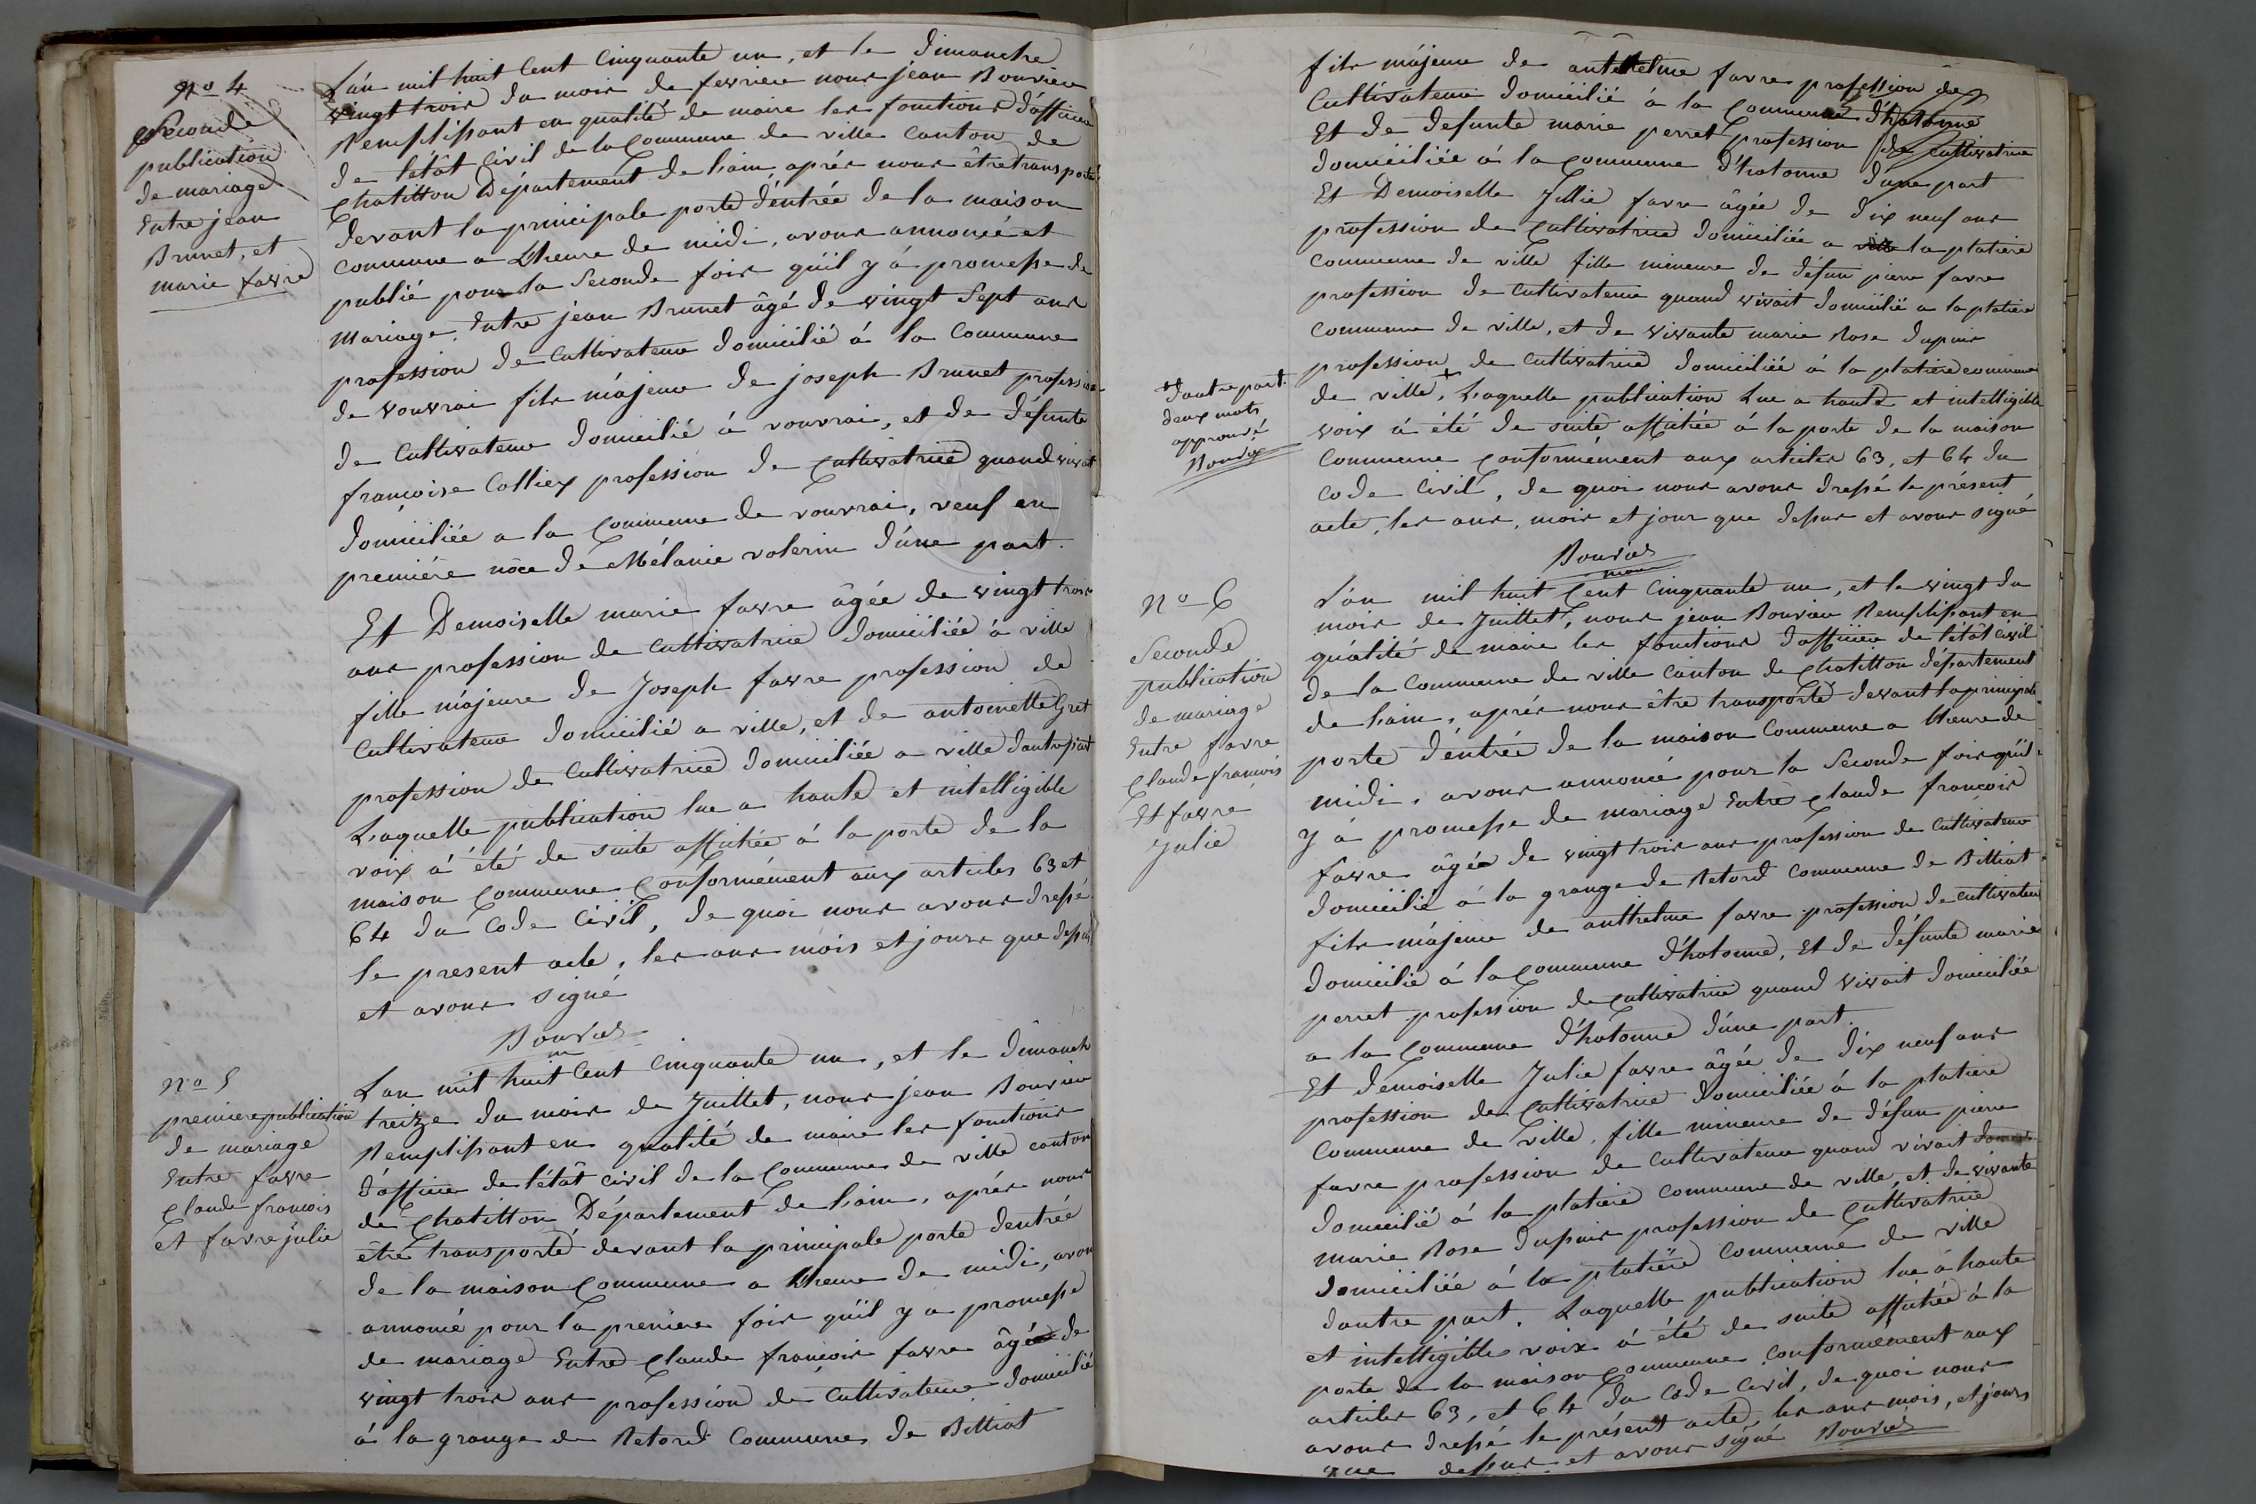 No 4
Seconde
publication
de mariage
Entre jean
Brunet, et
marie favre
L'án mil huit Cent Cinquante un, et le dimanche
vingt trois du mois de fevrier nous jean Bouvier
Remplissant en qualité de maire les fonctions d'officier
de l'etât Civil de la Commune de ville Canton de
Chatillon Département de l'ain, aprés nous être transporté
devant la principale porte d'éntrée de la maison
commune a L'heure de midi, avons annoncé et
publié pour la Seconde fois qu'il y á promesse de
mariage, Entre jean Brunet âgé de vingt Sept ans
profession de Cultivateur domicilié á la Commune
de vouvrai fils májeur de joseph Brunet profession
de Cultivateur domicilié á vouvrai, et de défunte
francoise Colliex profession de Cultivatrice quand vivait
domiciliée a la Commune de vouvrai, veuf en
premiére nôce de Mélanie volerin d'úne part.
Et Demoiselle marie favre âgée de vingt trois
ans profession de Cultivatrice domiciliée á ville
fille májeure de Joseph favre profession de
Cultivateur domicilié a ville, et de antoinette Gret
profession de Cultivatrice domiciliée a ville dautre part
Laquelle publication lue a haute et intelligible
voix á été de suite affichée á la porte de la
maison Commune Conformément aux articles 63 et
64 du Code Civil, de quoi nous avons dressé
le present acte, les ans mois et jours que dessus
et avons signé
Bouvier
No 5
premiere publication
de mariage
Entre favre
Claude francois
et favre julie
L'an mil huit Cent Cinquante un, et le dimanche
treize du mois de Juillet, nous jean Bouvier
Remplissant en qualité de maire les fonctions
d'officier de l'état civil de la Commune de ville canton
de Chatillon Département de l'ain, aprés nous
être transporté devant la principale porte dentrée
de la maison Commune a L'heure de midi, avons
annoncé pour la premiére fois qu'il y a promesse
de mariage Entre Claude francois favre âgé de
vingt trois ans profession de Cultivateur domicilié
á la grange de Retord Commune de Billiat
fils májeur de anthelme favre profession de
Cultivateur domicilié á la Commune d'hotonne
Et de defunte marie perret profession de cultivatrice
domiciliée á la Commune d'hotonne d'úne part
Et Demoiselle Jullie favre âgée de dix neuf ans
profession de Cultivatrice domiciliée a ville la platiere
Commune de ville fille mineure de défun pierre favre
profession de Cultivateur quand vivait domicilié a la platiere
Commune de ville, et de vivante marie Rose dupuis
profession de Cultivatrice domiciliée á la platiere commune
de ville + Laquelle publication Lue a haute et intelligible
voix á été de suite affichée á la porte de la maison
Commune Conformément aux articles 63, et 64 du
Code Civil, de quoi nous avons dressé le présent
acte, les ans, mois et jour que dessus et avons signé
+ dautre part.
deux mots
approuvé
Bouvier
Bouvier
maire
No 6
Seconde
publication
de mariage
Entre favre
Claude francois
Et favre
Julie
L'án mil huit Cent Cinquante un, et le vingt du
mois de Juillet, nous jean Bouvier Remplissant en
quálité de maire les fonctions d'officier de l'étât civil
de la Commune de ville Canton de Chatillon département
de l'ain, aprés nous être transporté devant la principale
porte d'éntrée de la maison Commune a l'heure de
midi, avons annoncé pour la Seconde fois qu'il
y á promesse de mariage Entre Claude francois
favre âgé de vingt trois ans profession de Cultivateur
domicilié á la grange de Retord Commune de Billiat
fils májeur de anthelme favre profession de cultivateur
domicilié á la Commune d'hotonne, Et de défunte marie
perret profession de Cultivatrice quand vivait domiciliée
a la Commune d'hotonne d'úne part.
Et demoiselle Julie favre âgée de dix neuf ans
profession de Cultivatrice domiciliée á la platiere
Commune de ville, fille mineure de défun pierre
favre profession de Cultivateur quand vivait
domicilié á la platiere commune de ville, et de vivante
marie Rose dupuis profession de Cultivatrice
domiciliée á la platiere Commune de ville
dautre part. Laquelle publication lue á haute
et intelligible voix á été de suite affichée á la
porte de la maison Commune Conformement aux
articles 63, et 64 du Code Civil, de quoi nous
avons dressé le présent acte, les ans mois, et jours
que dessus et avons signé Bouvier